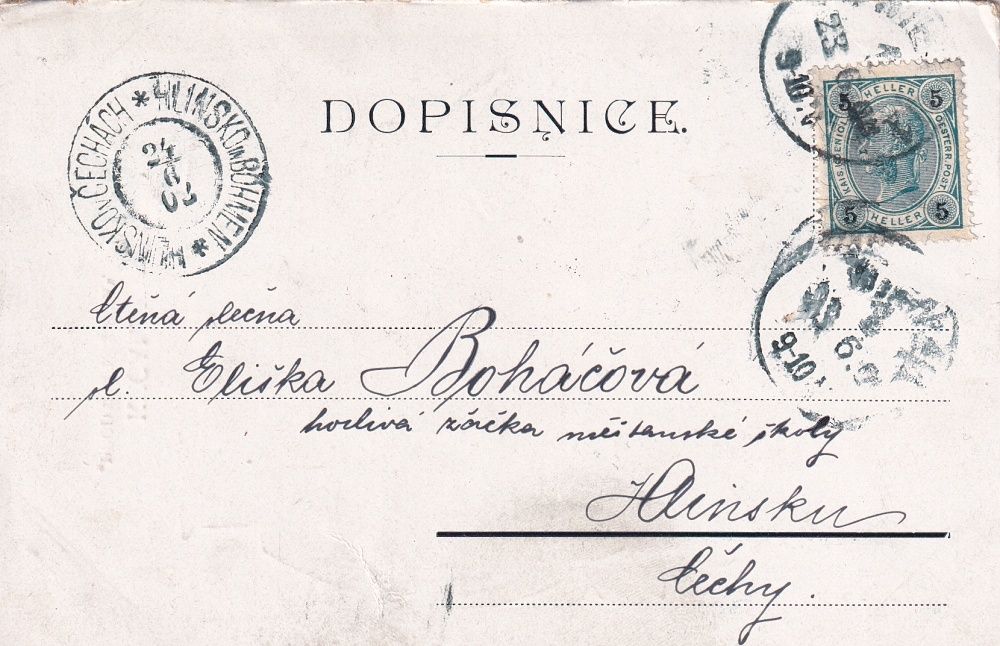 DOPISNICE.
HLINSKO IN BÖHMEN * HLINSKO V ČECHÁCH *
24
6
02
23
9-10
5 HELLER 5
KAIS. KÖNIGL. OESTERR. POST
5 HELLER 5
6
9-10
Ctěná slečna
sl. Eliška Boháčová
horlivá žačka měšťanské školy
Hlinsku
Čechy.